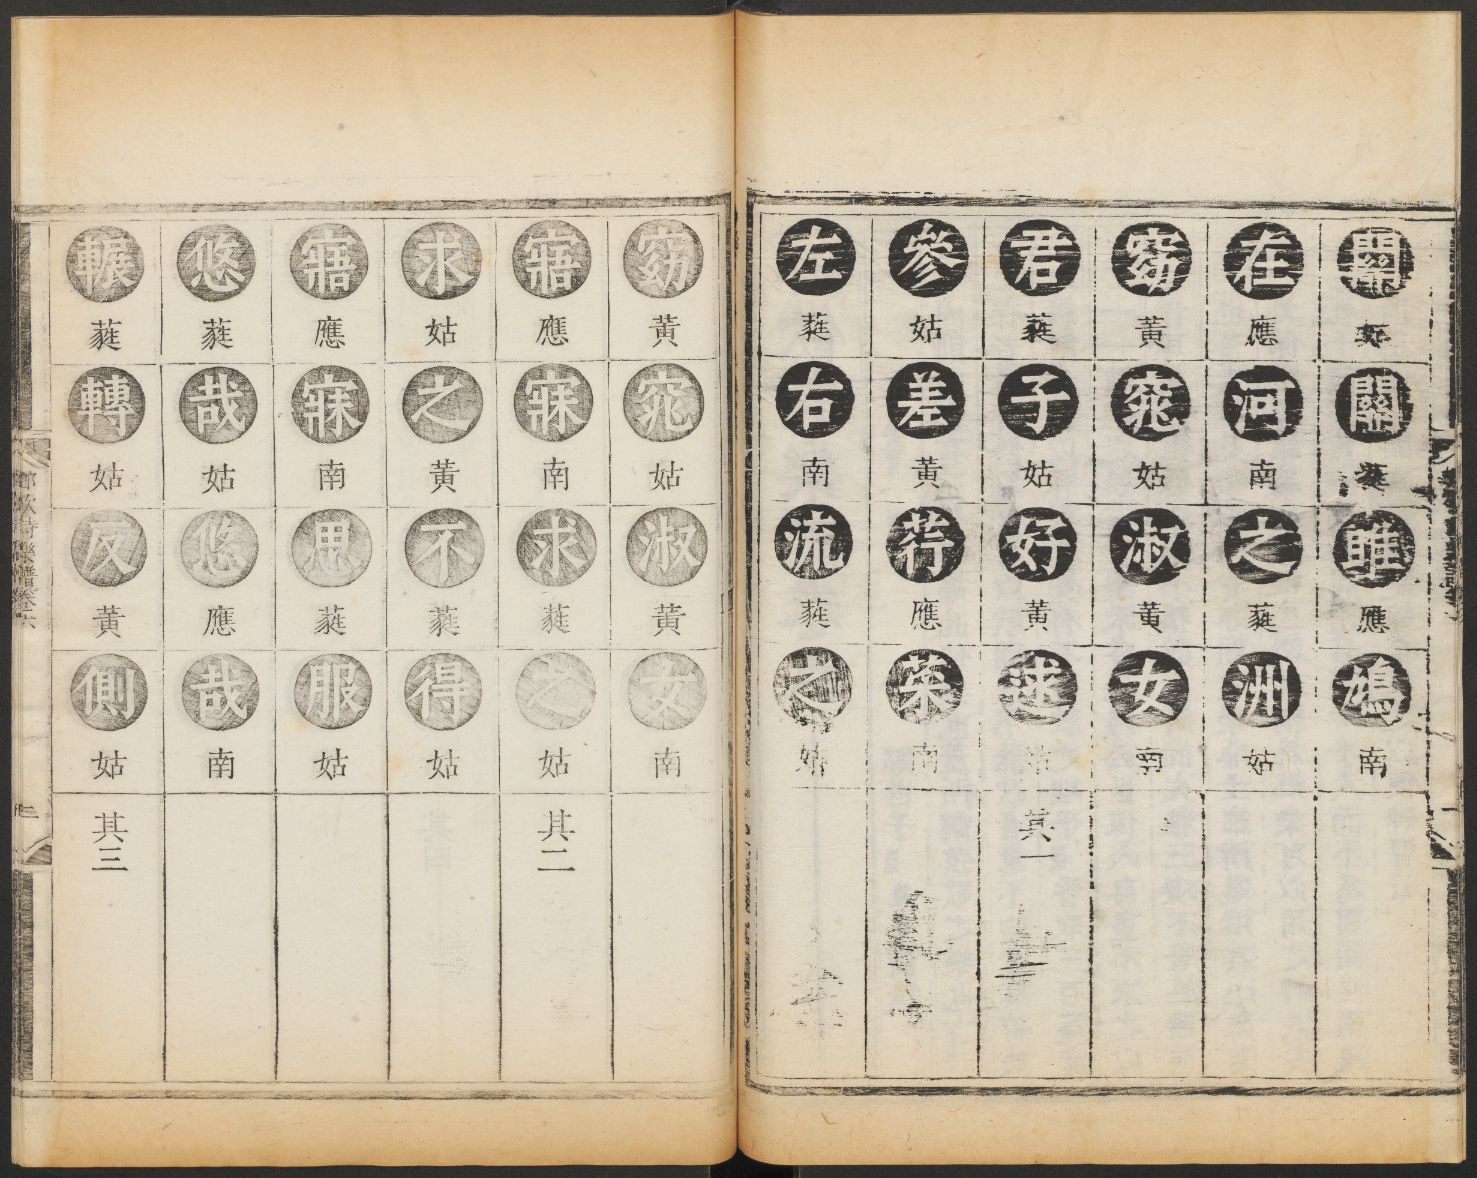 關關蕤雎應鳩南
在應河南之蕤洲姑
窈黃窕姑淑黃女南
君蕤子姑好黃逑姑其一
參姑差黃荇應菜南
左蕤右南流蕤之姑
窈黃窕姑淑黃女南
寤應寐南求蕤之姑其二
求姑之黃不蕤得姑
寤應寐南思蕤服姑
悠蕤哉姑悠應哉南
輾蕤轉姑反黃側姑其三
鄉飲詩樂譜卷六